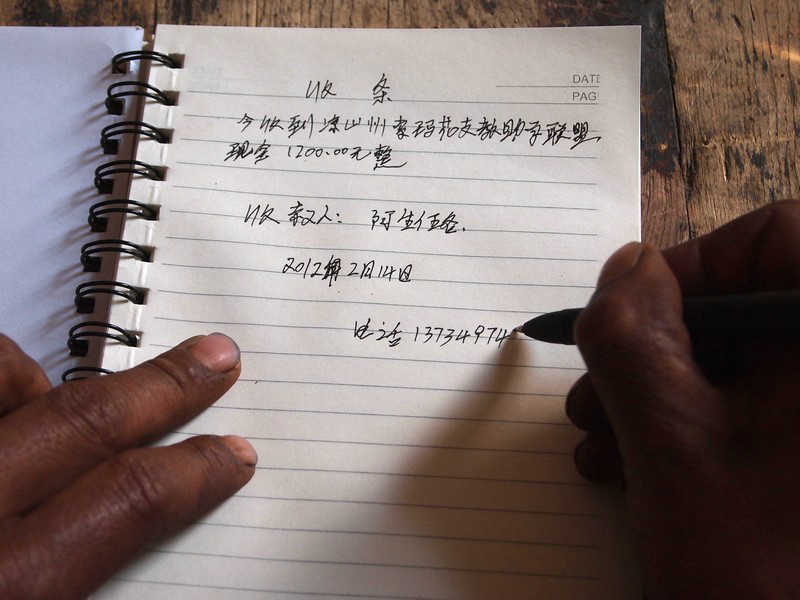 DATE
PAG
收条
今收到凉山州索玛花支教助学联盟
现金1200.00元整
收款人：阿生伍各.
2012年2月14日
电话13734974